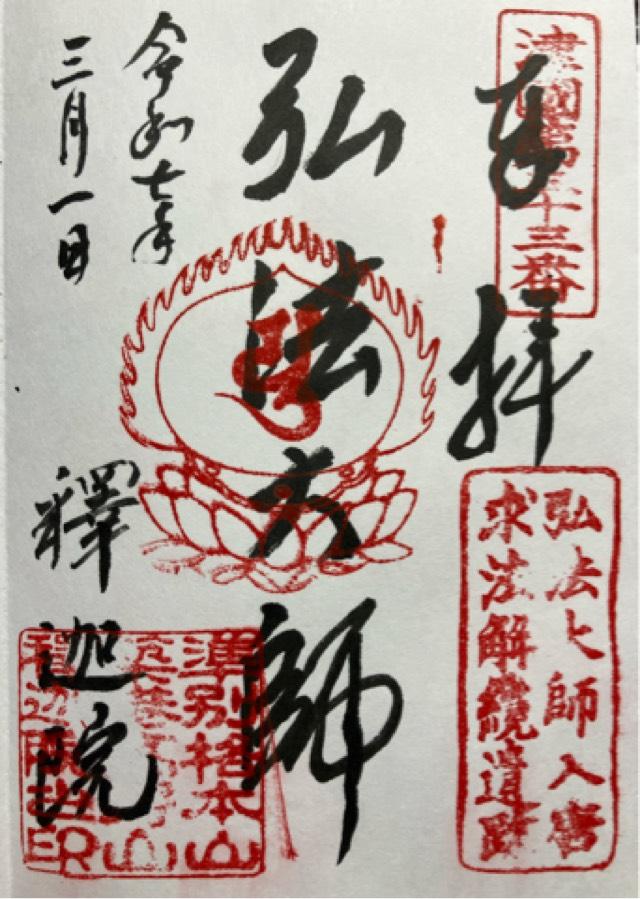 津國第三十三番
奉拝
弘法大師入唐
求法解纜遺跡
弘法大師
令和七年
三月一日
釋迦院
準別格本山